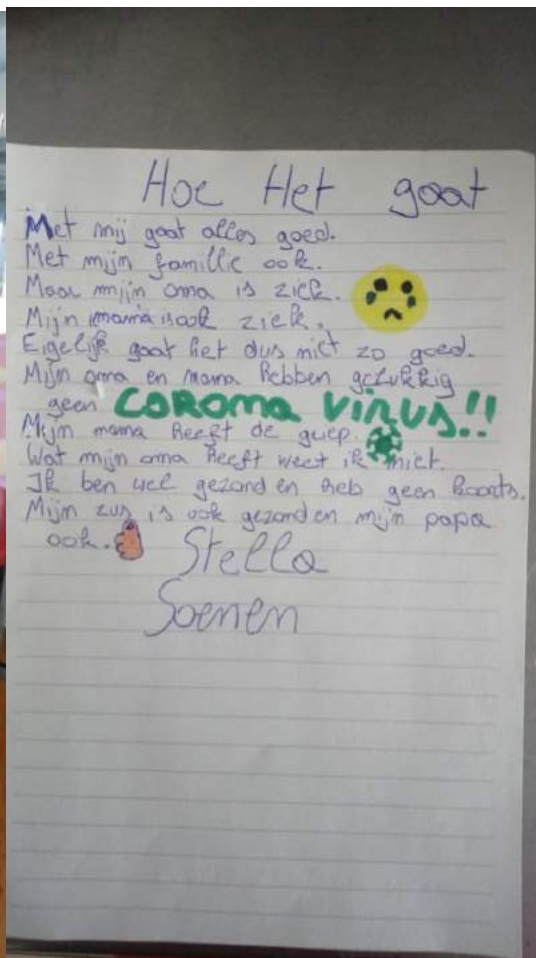 Hoe Het gaat
Met mij gaat alles goed.
Met mijn famillie ook.
Maar mijn oma is ziek.
Mijn mama is ook ziek.
Eigelijk gaat het dus niet zo goed.
Mijn oma en mama hebben gelukkig
geen COROMA VIRUS!!
Mijn mama heeft de griep.
Wat mijn oma heeft weet ik niet.
Ik ben wel gezond en heb geen koorts.
Mijn zus is ook gezond en mijn papa
ook.
Stella
Soenen